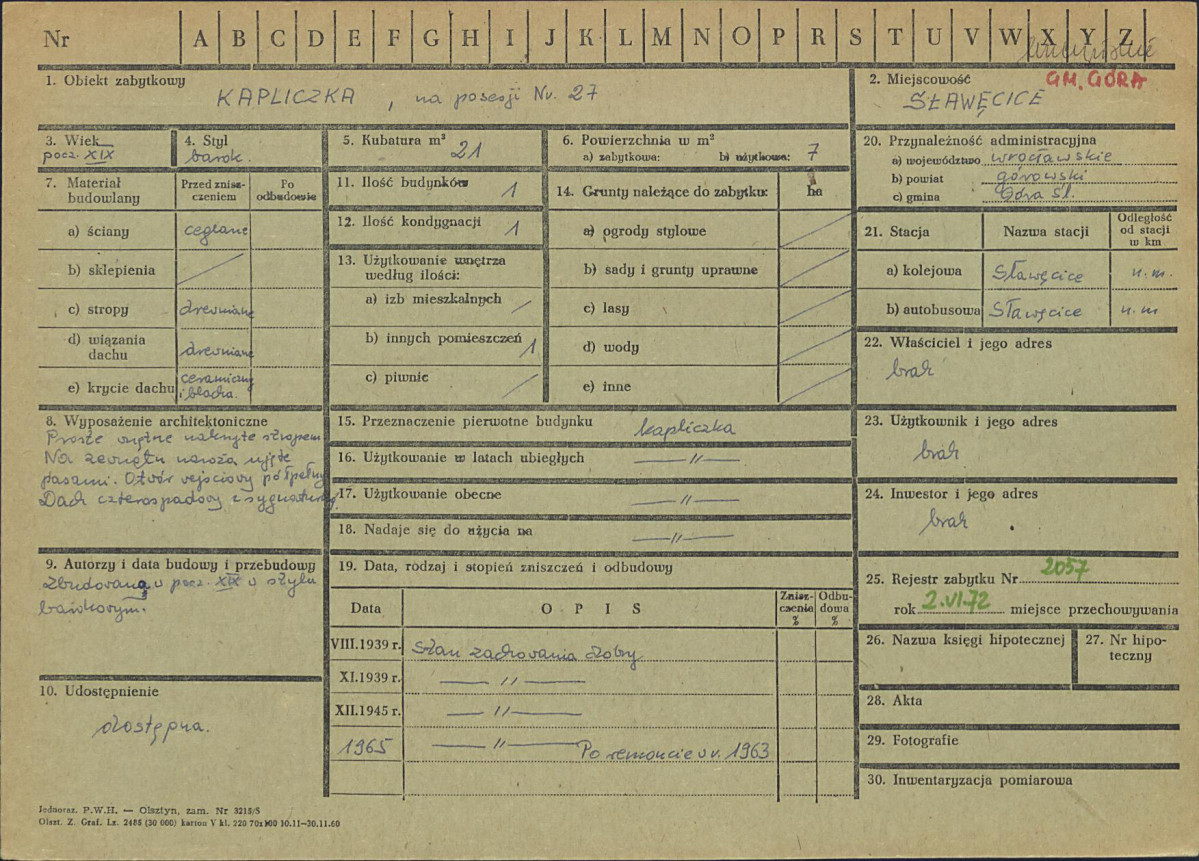 Nr A B C D E F G H I J K L M N O P R S T U V W X Y Z
1. Obiekt zabytkowy
KAPLICZKA, na posesji Nr. 27
2. Miejscowość
GM. GÓRA
SŁAWĘCICE
3. Wiek
pocz. XIX
4. Styl
barok.
5. Kubatura m³
21
6. Powierzchnia w m²
a) zabytkowa: b) użytkowa: 7
7. Materiał budowlany
Przed zniszczeniem
Po odbudowie
a) ściany ceglane
b) sklepienia
c) stropy drewniane
d) wiązania dachu drewniane
e) krycie dachu ceramiczny i blacha.
8. Wyposażenie architektoniczne
Proste wnętrze nakryte stropem
Na zewnątrz naroża ujęte
pasami. Otwór wejściowy półpełny
Dach czterospadowy z sygnaturką
9. Autorzy i data budowy i przebudowy
Zbudowana w pocz. XIX w stylu
barokowym.
10. Udostępnienie
dostępna.
11. Ilość budynków 1
12. Ilość kondygnacji 1
13. Użytkowanie wnętrza
według ilości:
a) izb mieszkalnych
b) innych pomieszczeń 1
c) piwnic
14. Grunty należące do zabytku: ha
a) ogrody stylowe
b) sady i grunty uprawne
c) lasy
d) wody
e) inne
15. Przeznaczenie pierwotne budynku kapliczka
16. Użytkowanie w latach ubiegłych —〃—
17. Użytkowanie obecne —〃—
18. Nadaje się do użycia na —〃—
19. Data, rodzaj i stopień zniszczeń i odbudowy
Data OPIS Zniszczenia % Odbudowa %
VIII.1939 r. Stan zachowania dobry
XI.1939 r. —〃—
XII.1945 r. —〃—
1965 —〃— Po remoncie w r. 1963
20. Przynależność administracyjna
a) województwo wrocławskie
b) powiat górowski
c) gmina Góra Śl.
21. Stacja Nazwa stacji Odległość od stacji w km
a) kolejowa Sławęcice n.m.
b) autobusowa Sławęcice n.m
22. Właściciel i jego adres
brak
23. Użytkownik i jego adres
brak
24. Inwestor i jego adres
brak
25. Rejestr zabytku Nr 2057
rok 2.VI.72 miejsce przechowywania
26. Nazwa księgi hipotecznej
27. Nr hipoteczny
28. Akta
29. Fotografie
30. Inwentaryzacja pomiarowa
Jednoraz. P.W.H. — Olsztyn, zam. Nr 3215/S
Olszt. Z. Graf. Lz. 2485 (30 000) karton V kl. 220 70x100 10.11—30.11.60